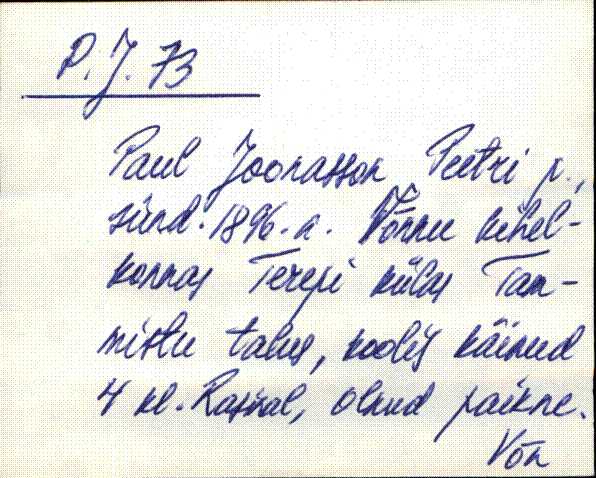 P. J. 73
Paul Joonasson Peetri p.,
sünd. 1896. a. Võnnu kihel-
konnas Terepi külas Tam-
mistu talus, koolis käinud
4 kl. Rasinal, olnud paikne.
Võn